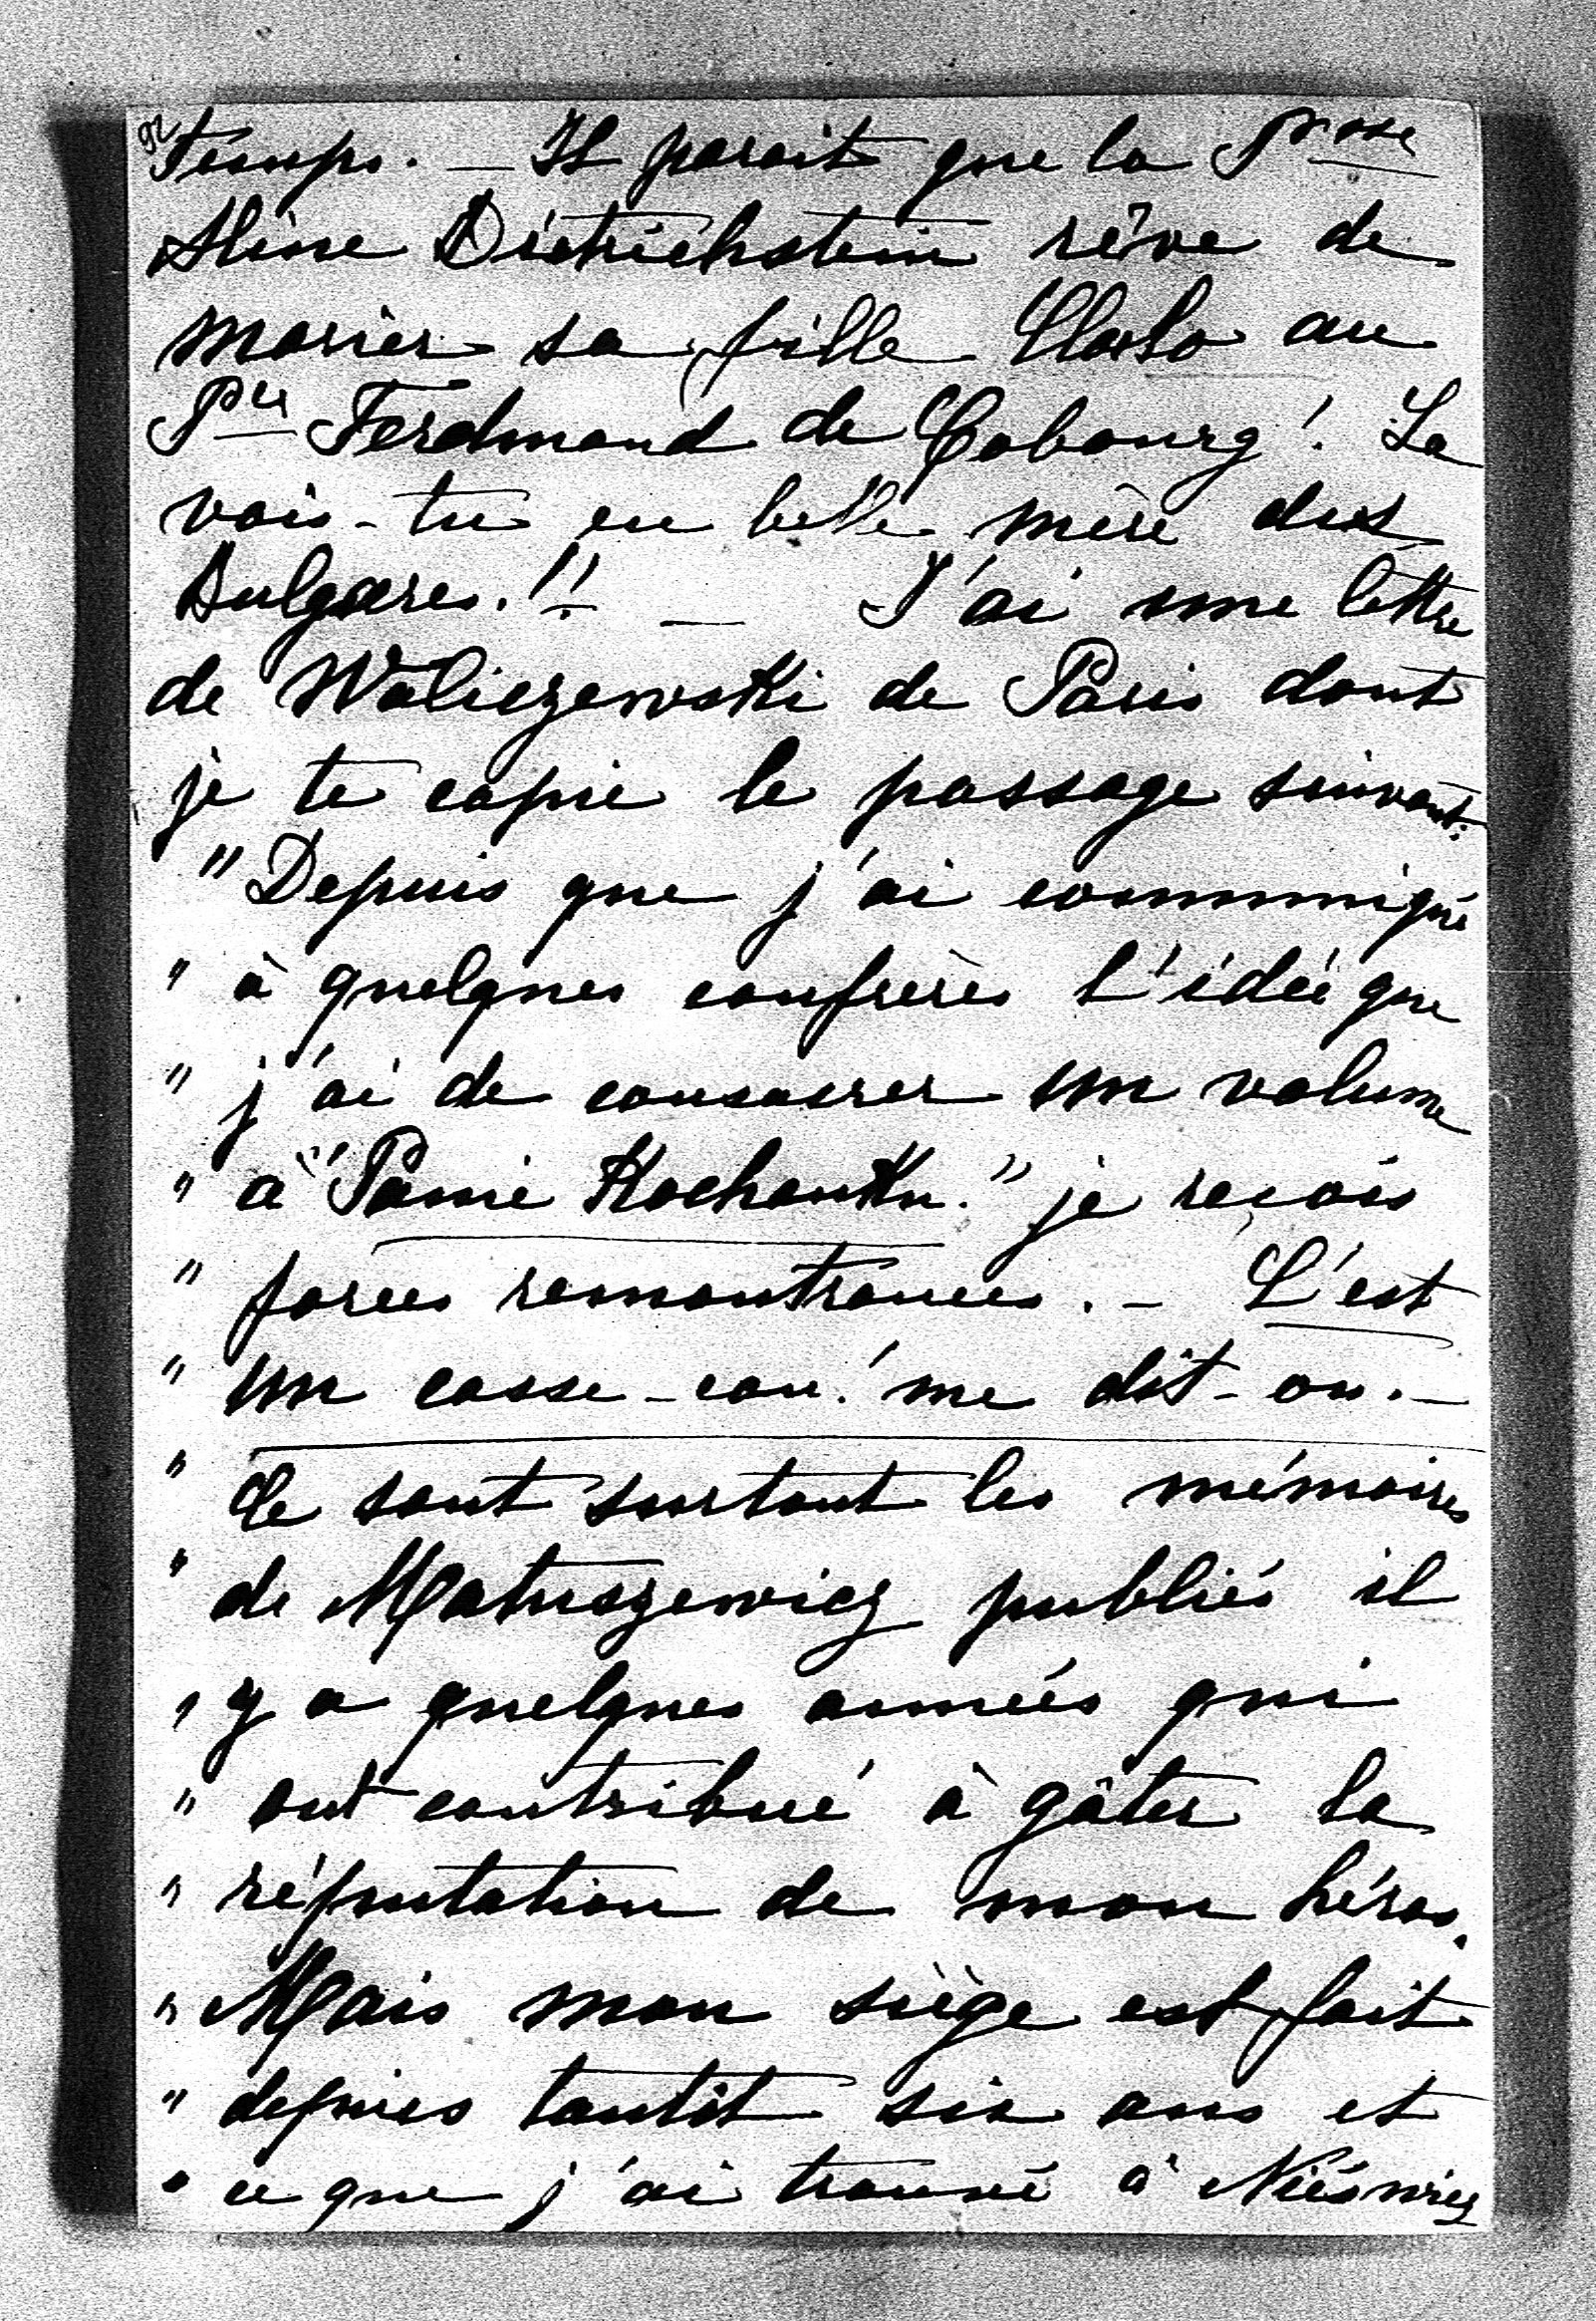 temps. — Il parait que la Psse
Aline Dietrichstein rêve de
marier sa fille Clolo au
Pce Ferdinand de Cobourg! La
vois-tu en belle mère des
Bulgares!! — J'ai une lettre
de Waliczewski de Paris dont
je te copie le passage suivant:
"Depuis que j'ai communiqué
" à quelques confrères l'idée que
" j'ai de consacrer un volume
" à "Panie Kochanku." je reçois
" forces remontrances. — C'est
" un casse-cou! me dit-on. —
" Ce sont surtout les mémoires
" de Matuszewicz publiés il
" y a quelques années qui
" ont contribué à gâter la
" réputation de mon héros.
" Mais mon siège est fait
" depuis tantôt six ans et
" ce que j'ai trouvé à Nieswiez